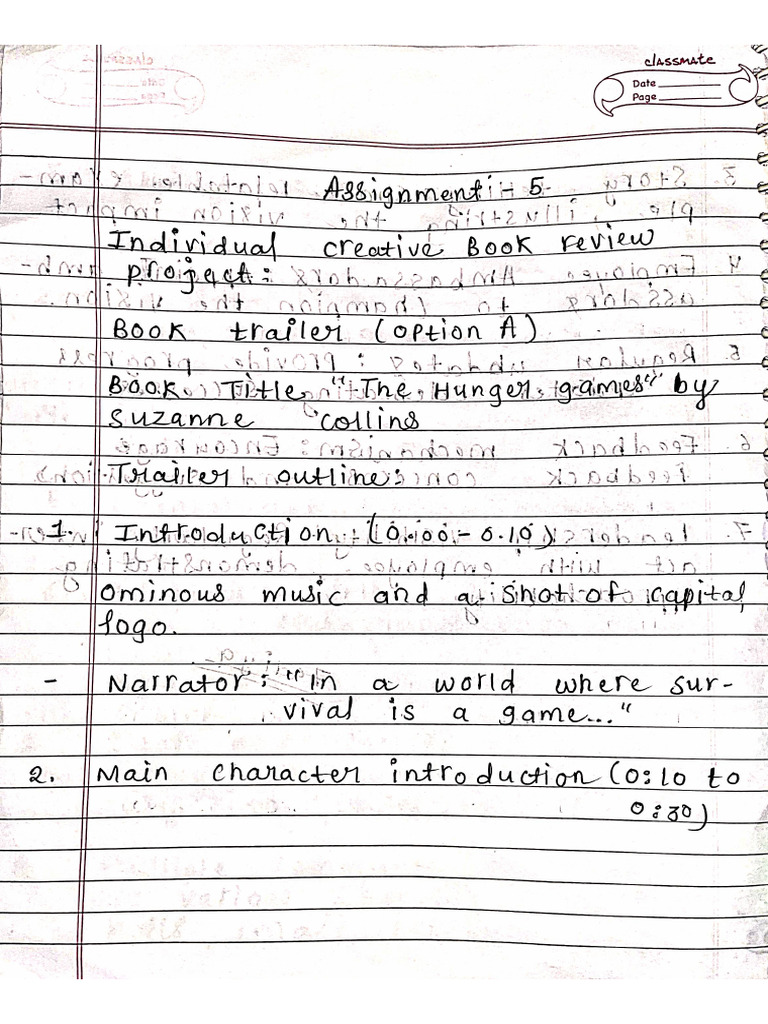 classmate
Date
Page
Assignment :- 5
Individual creative Book review
project:
Book trailer (option A)
Book Title "The Hunger games" by
suzanne collins
Trailer outline:
1. Introduction :- (0.00 - 0.10)
ominous music and a shot of capital
logo.
- Narrator: "In a world where sur-
vival is a game..."
2. Main character introduction (0:10 to
0:30)